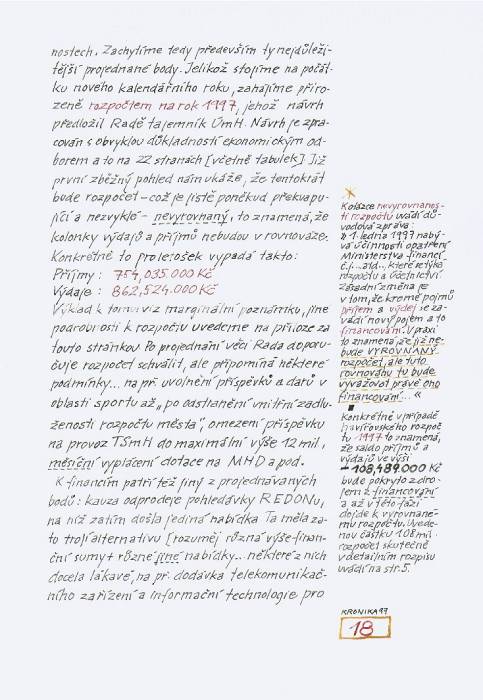 nostech. Zachytíme tedy především ty nejdůleži-
tější projednané body. Jelikož stojíme na počát-
ku nového kalendářního roku, zahájíme přiro-
zeně rozpočtem na rok 1997, jehož návrh
předložil Radě tajemník ÚmH. Návrh je zpra-
cován s obvyklou důkladností ekonomickým od-
borem a to na 22 stranách [včetně tabulek] Již
první zběžný pohled nám ukáže, že tentokrát
bude rozpočet – což je jistě poněkud překvapu-
jící a nezvyklé – nevyrovnaný, to znamená, že
kolonky výdajů a příjmů nebudou v rovnováze.
Konkrétně to pro letošek vypadá takto:
Příjmy : 754,035.000 Kč
Výdaje : 862,524.000 Kč
Výklad k tomu viz marginální poznámku, jiné
podrobnosti k rozpočtu uvedeme na příloze za
touto stránkou Po projednání věci Rada doporu-
čuje rozpočet schválit, ale připomíná některé
podmínky... na př. uvolnění příspěvků a darů v
oblasti sportu až „po odstranění vnitřní zadlu-
ženosti rozpočtu města", omezení příspěvku
na provoz TSmH do maximální výše 12 mil,
měsíční vyplácení dotace na MHD a pod.
K financím patří též jiný z projednávaných
bodů : kauza odprodeje pohledávky REDONu,
na niž zatím došla jediná nabídka Ta měla za-
to trojí alternativu [rozuměj různá výše finan-
ční sumy + různé jiné nabídky... některé z nich
docela lákavé, na př. dodávka telekomunikač-
ního zařízení a informační technologie pro
K otázce nevyrovnanos-
ti rozpočtu uvádí dů-
vodová zpráva :
» 1. ledna 1997 nabý-
vá účinnosti opatření
Ministerstva financí
č.j.... atd.., které se týká
rozpočtů a účetnictví.
Zásadní změna je
v tom, že kromě pojmů
příjem a výdej se za-
vádí nový pojem a to
financování. V praxi
to znamená, že již ne-
bude VYROVNANÝ
rozpočet, ale tuto
rovnováhu tu bude
vyvažovat právě ono
financování ... «
Konkrétně v případě
havířovského rozpoč-
tu 1997 to znamená,
že saldo příjmů a
výdajů ve výši
– 108,489.000 Kč
bude pokryto zdro-
jem z financování
a až v této fázi
dojde k vyrovnané-
mu rozpočtu. Uvede-
nou částku 108 mil.
rozpočet skutečně
v detailním rozpisu
uvádí na str. 5.
KRONIKA 97
18